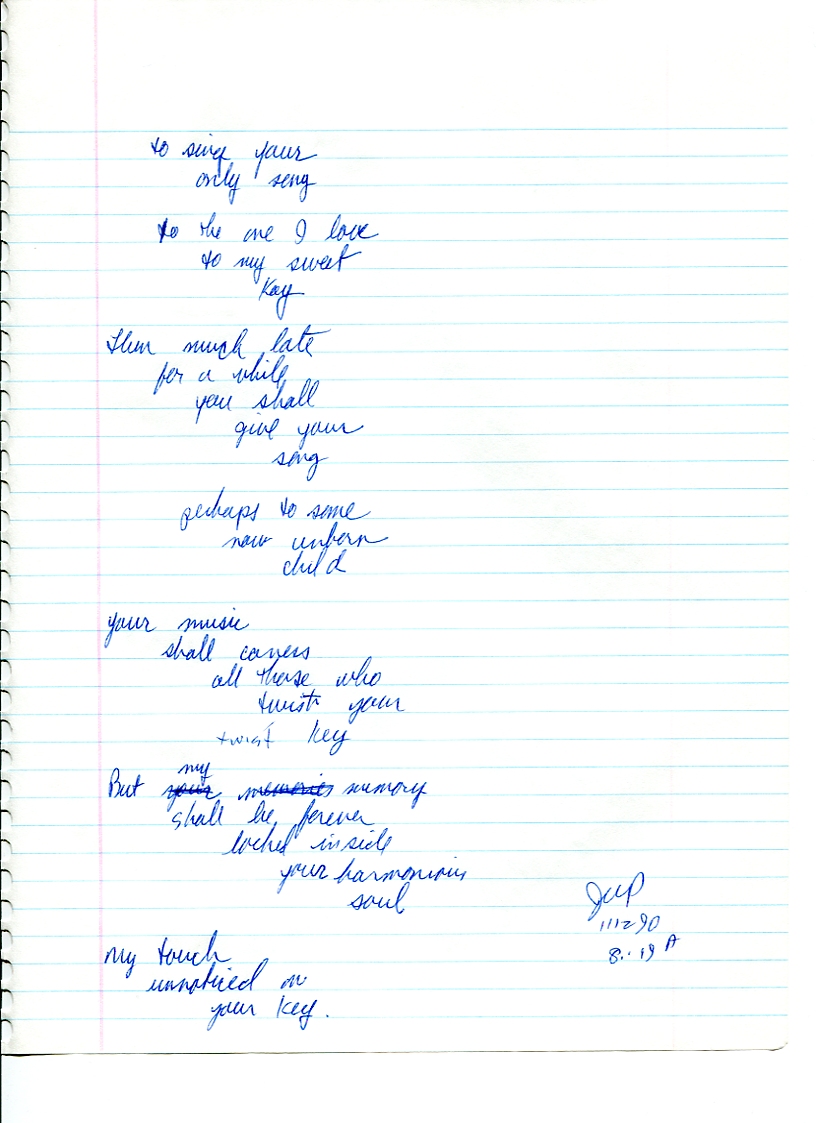 to sing your
only song
to the one I love
to my sweet
Kay
Then much late
for a while
you shall
give your
song
perhaps to some
now unborn
child
your music
shall caress
all those who
twist your
twist key
my
But your memories memory
shall be forever
locked inside
your harmonious
soul
JWP
111290
8:19 A
my touch
unnoticed on
your key.